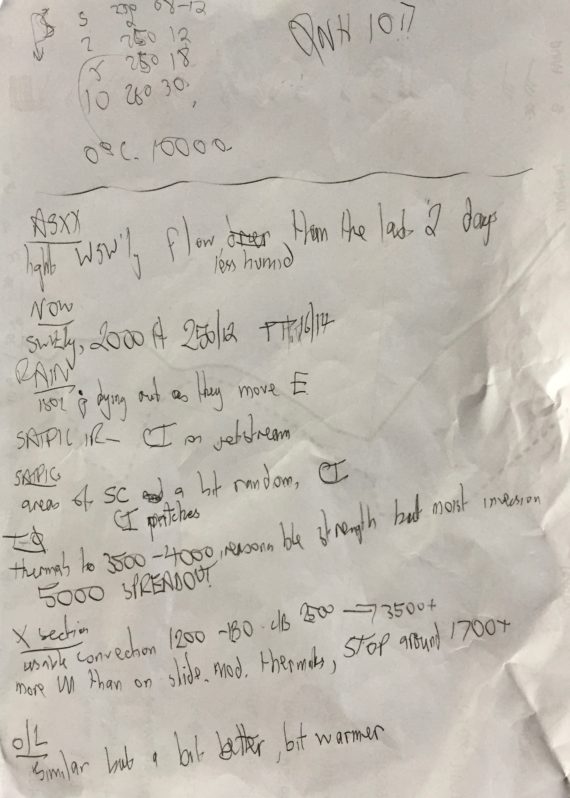 S 220 08-12
2 250 12
250 18
10 260 30
QNH 1017
0°C. 10000
ASXX
light WSW'ly flow, than the last 2 days
less humid
NOW
SW'ly, 2000 ft 250/12 16/14
RAIN
dying out as they move E
SATPIC IR- CI on jetstream
SATPIC
areas of SC a bit random, CI
CI patches
thermals to 3500-4000, reasonable strength but moist inversion
5000 SPREADOUT
X section
usable convection 1200 - c/b 2500 → 3500+
more W than on slide. mod. thermals, STOP around 1700+
O/L
similar but a bit better, bit warmer